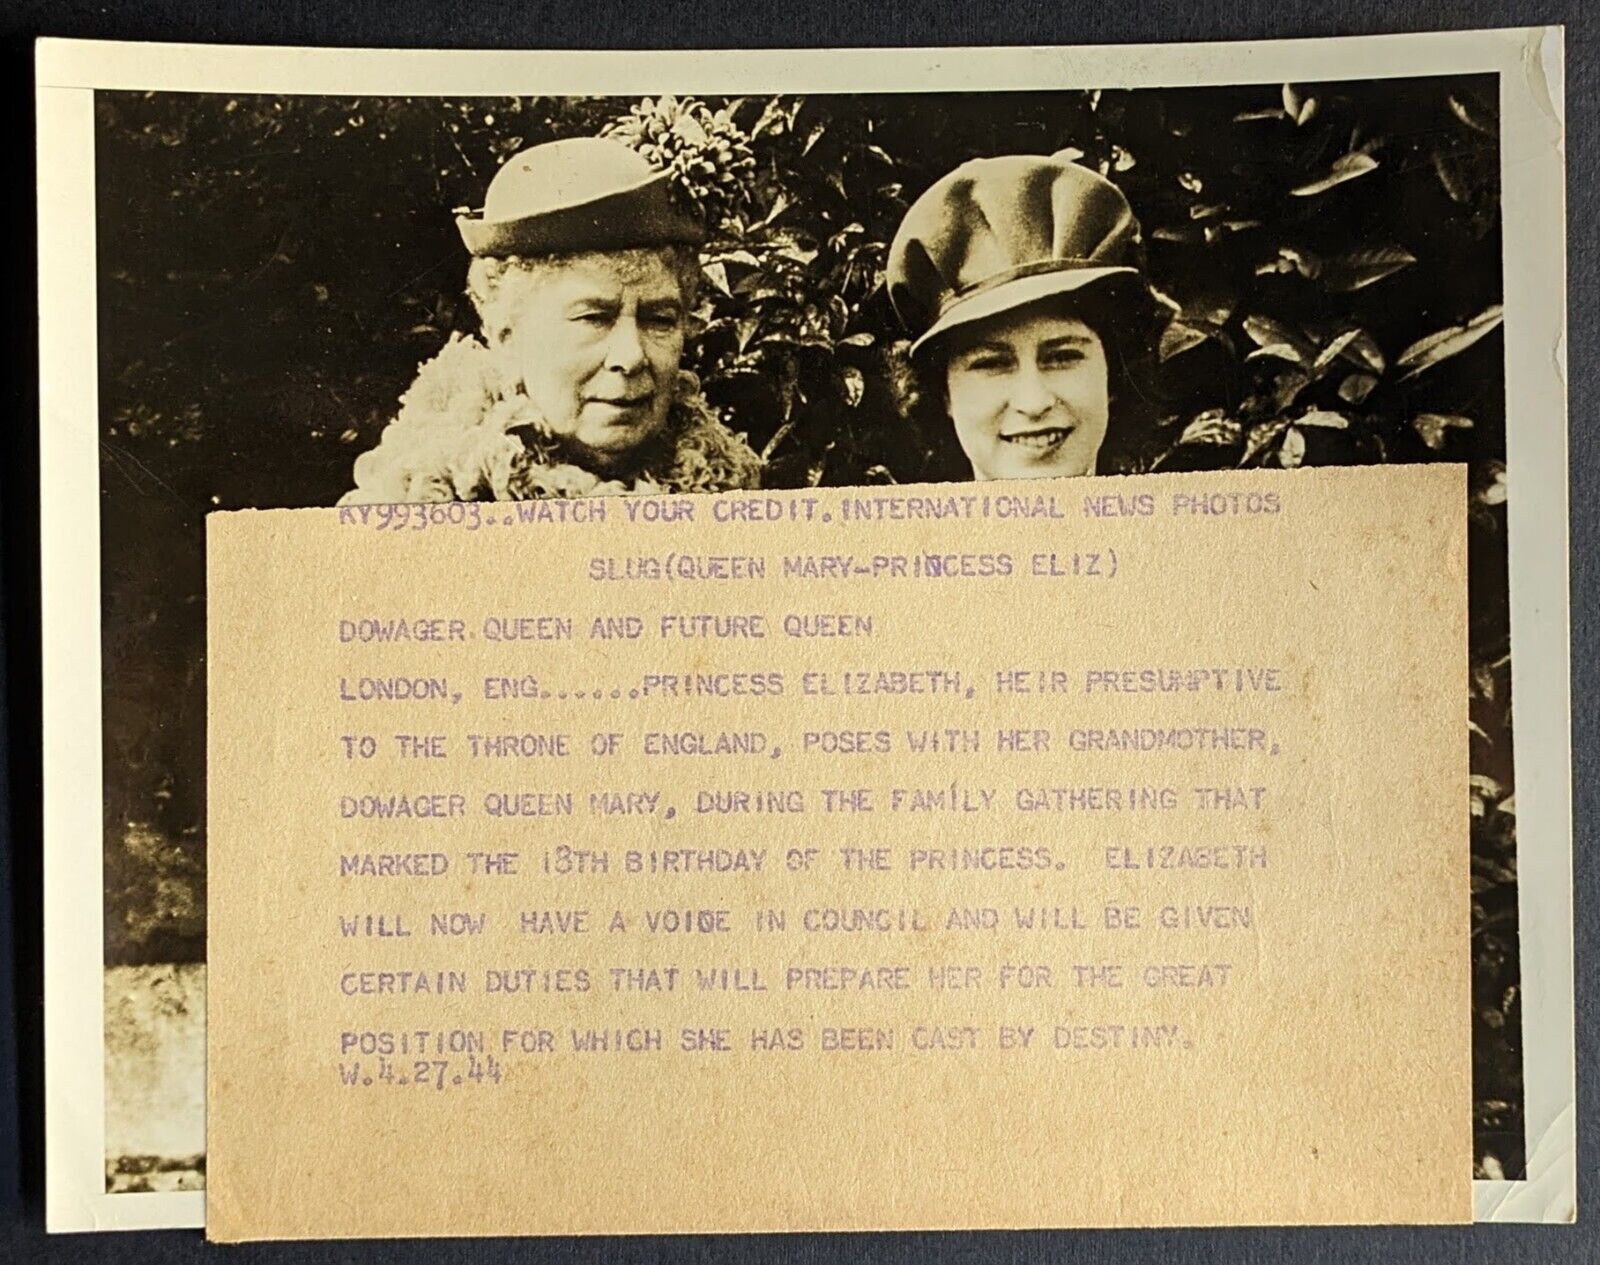 KY993603..WATCH YOUR CREDIT.INTERNATIONAL NEWS PHOTOS
SLUG(QUEEN MARY-PRINCESS ELIZ)
DOWAGER QUEEN AND FUTURE QUEEN
LONDON, ENG......PRINCESS ELIZABETH, HEIR PRESUMPTIVE
TO THE THRONE OF ENGLAND, POSES WITH HER GRANDMOTHER,
DOWAGER QUEEN MARY, DURING THE FAMILY GATHERING THAT
MARKED THE 18TH BIRTHDAY OF THE PRINCESS. ELIZABETH
WILL NOW HAVE A VOICE IN COUNCIL AND WILL BE GIVEN
CERTAIN DUTIES THAT WILL PREPARE HER FOR THE GREAT
POSITION FOR WHICH SHE HAS BEEN CAST BY DESTINY.
W.4.27.44